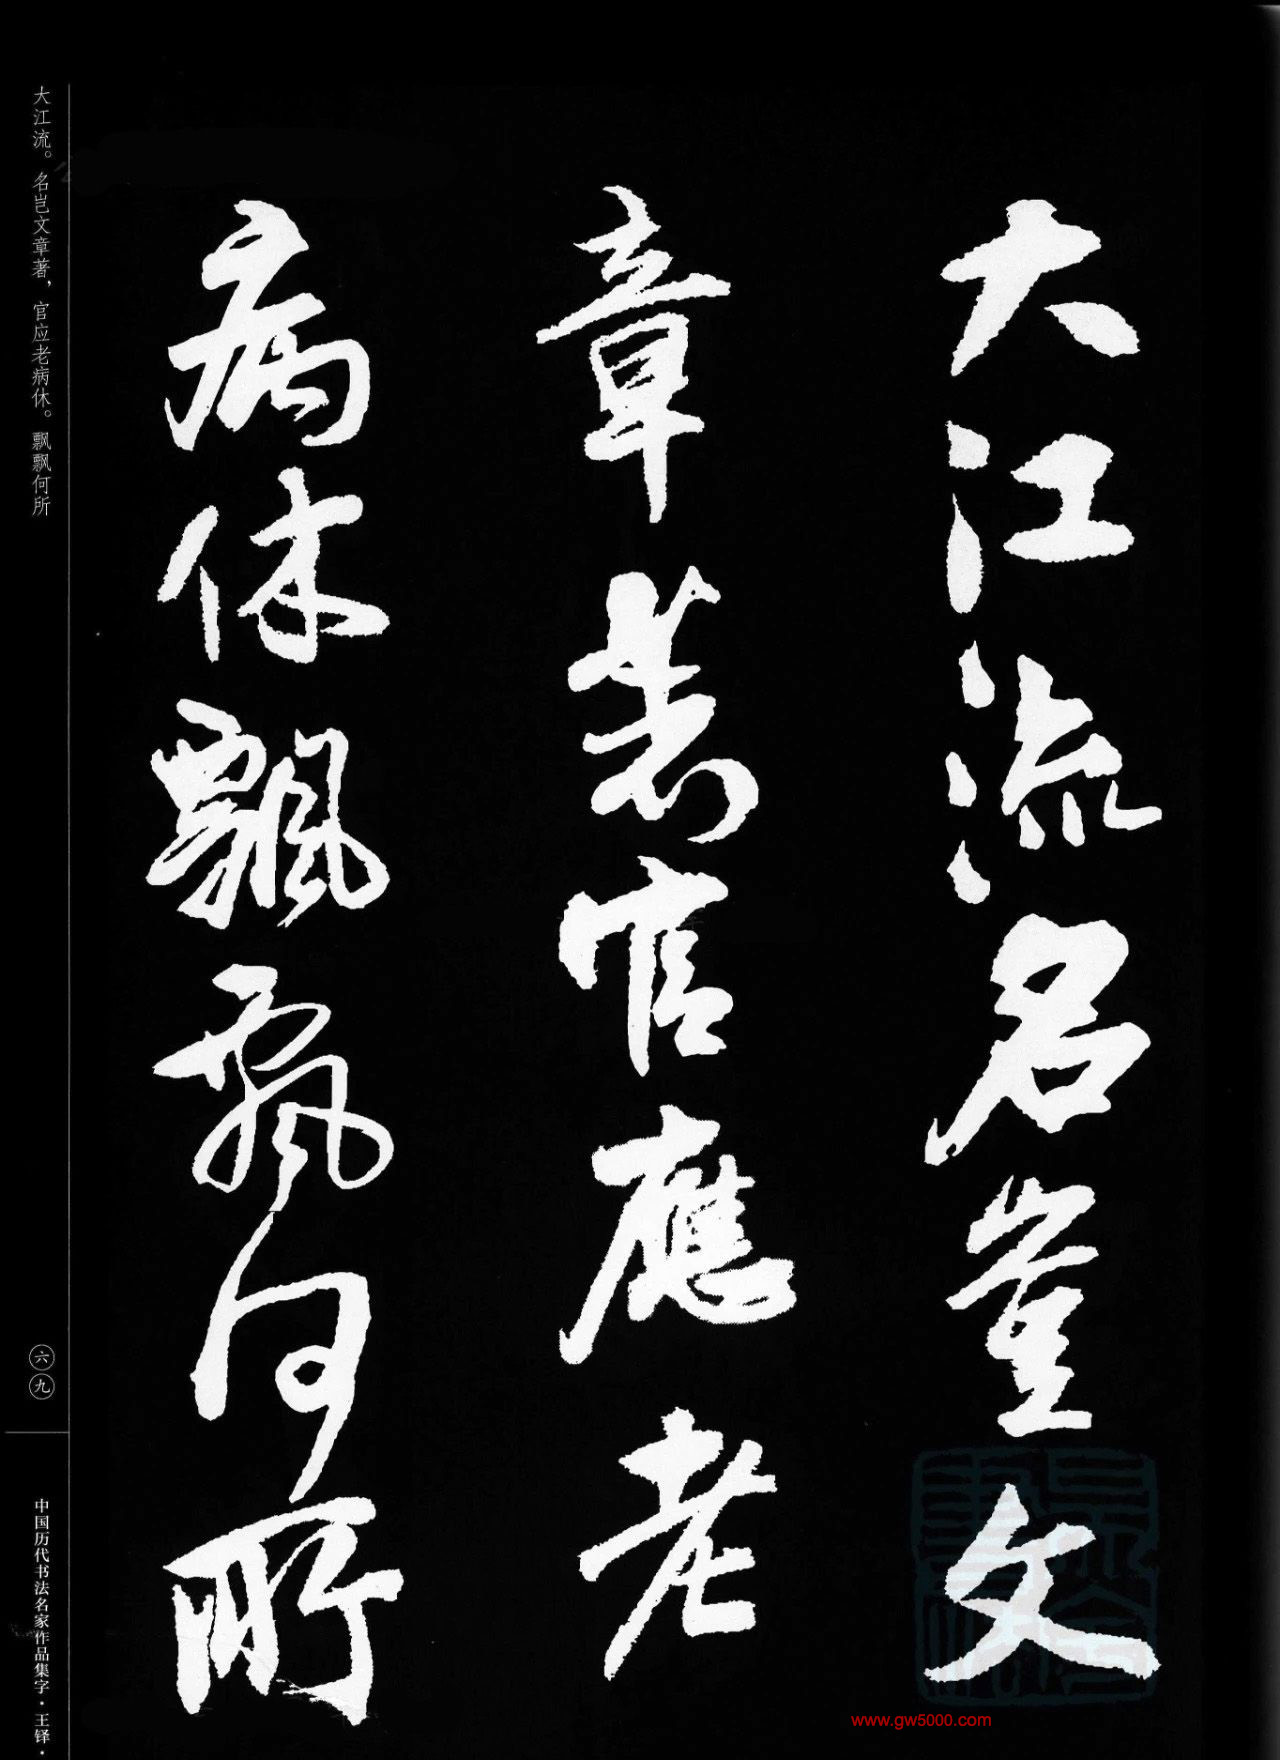 大江流名豈文
章著官應老
病休飄飄何所
大江流。名岂文章著，官应老病休。飘飘何所
六九
中国历代书法名家作品集字·王铎·
www.gw5000.com